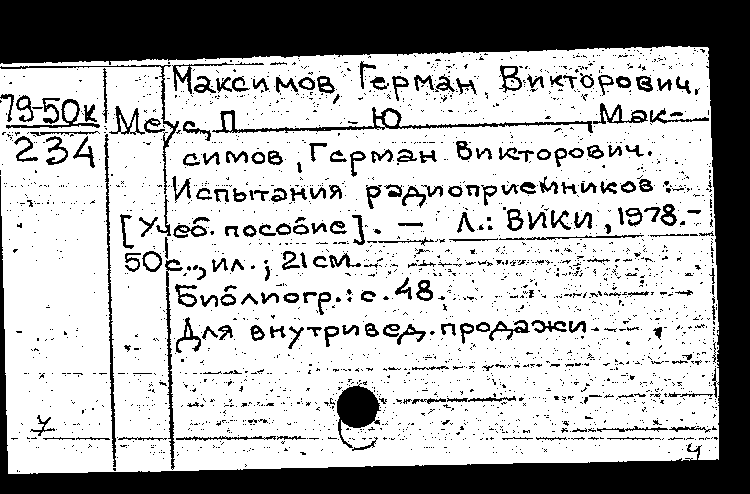 Максимов, Герман Викторович.
79-50к
234
Меус, П Ю , Мак-
симов, Герман Викторович.
Испытания радиоприемников:
[Учеб. пособие]. — Л.: ВИКИ, 1978.-
50с., ил.; 21см.
Библиогр.: с. 48.
Для внутривед. продажи
7
4